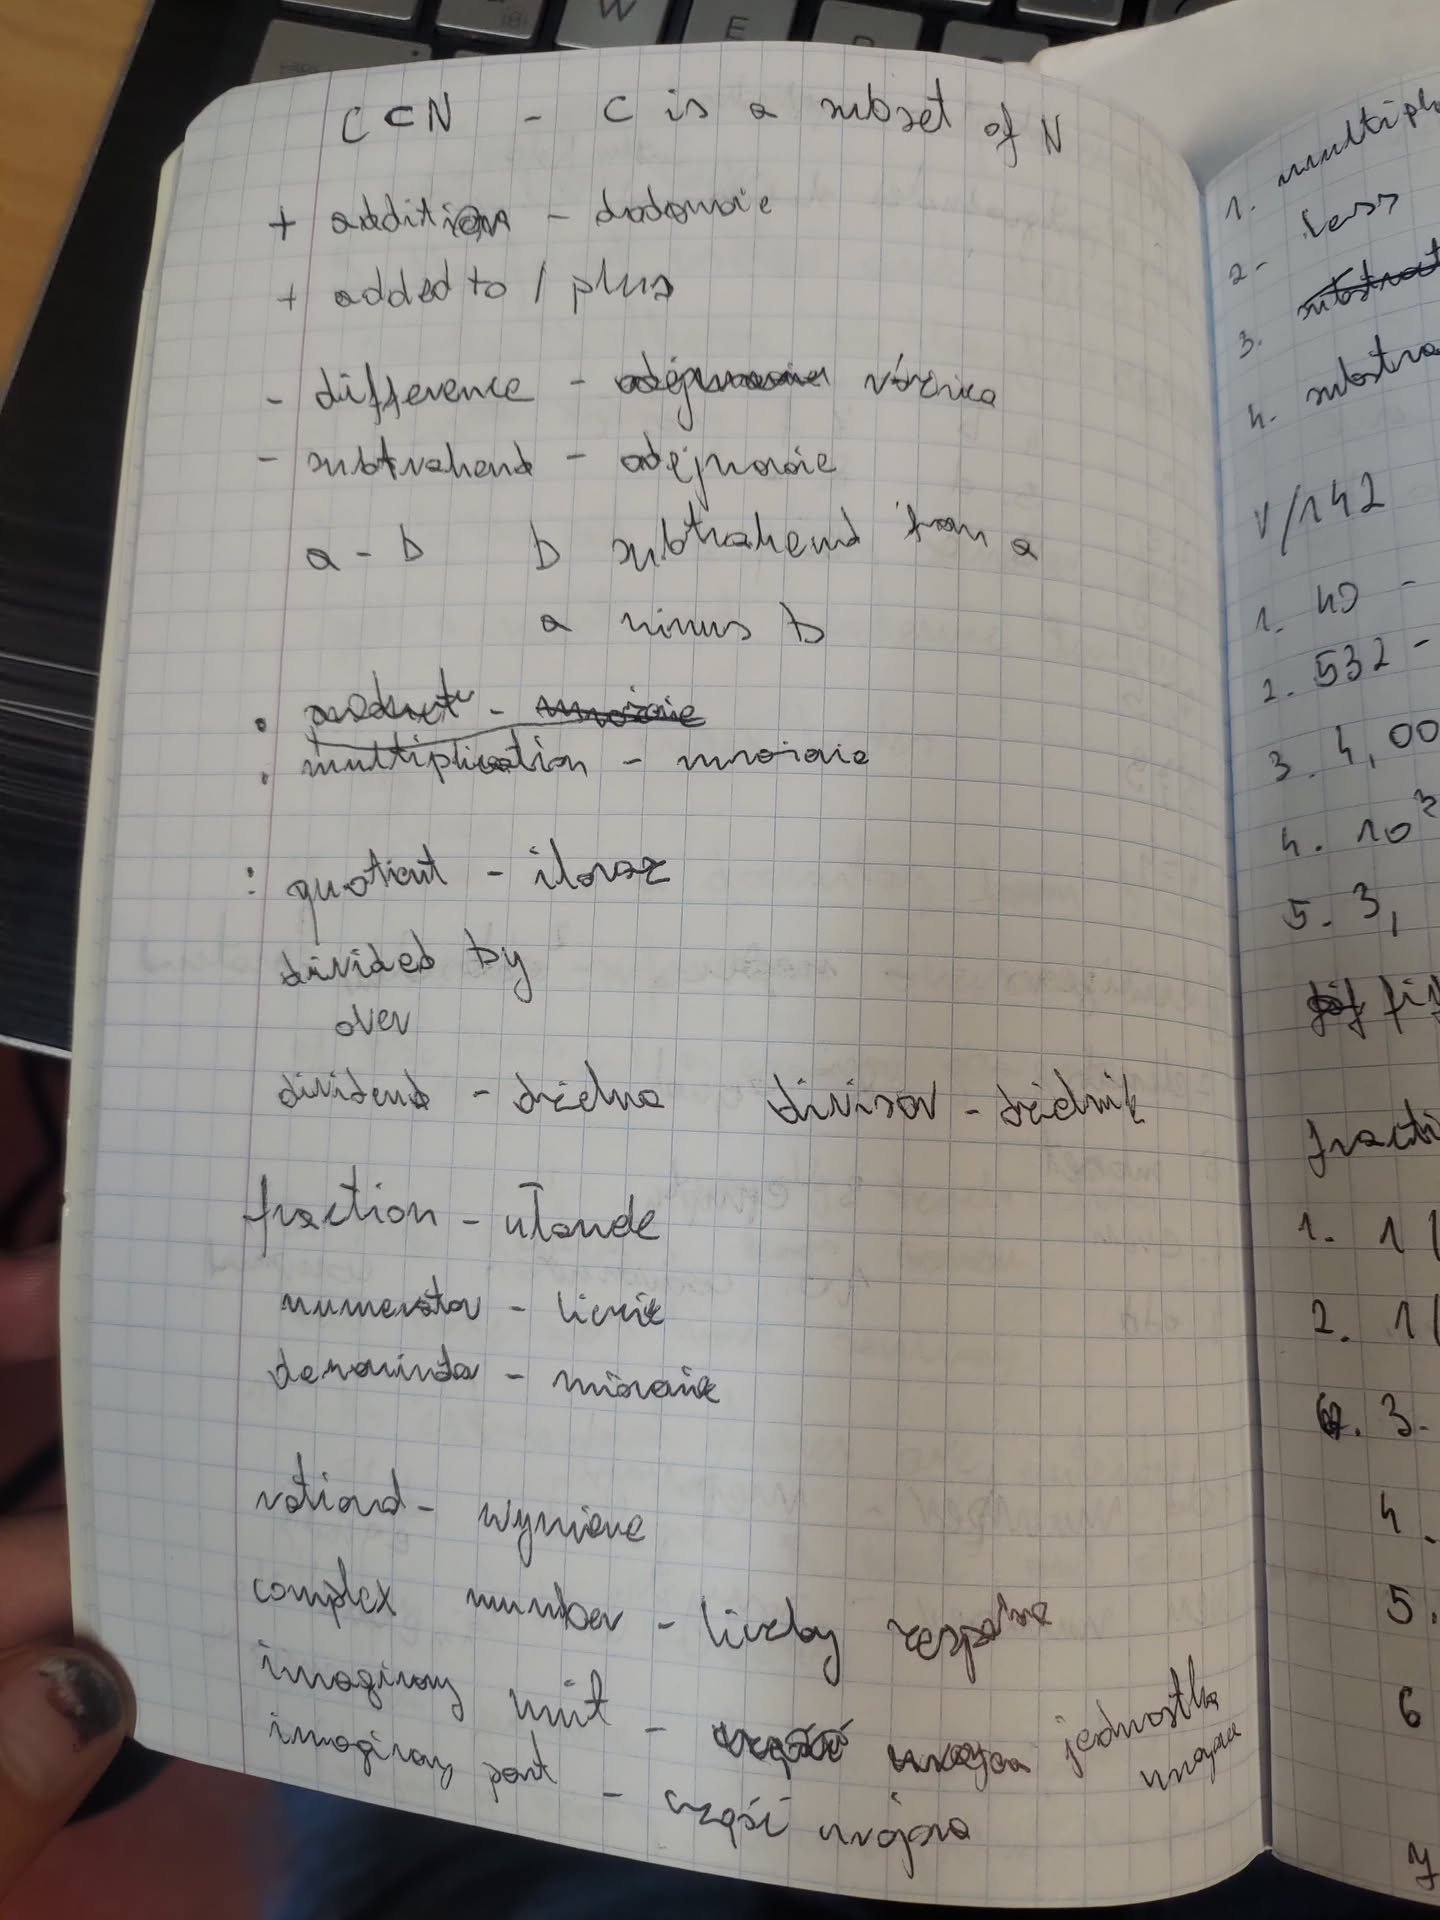 W E
C ⊂ N - C is a subset of N
+ addition - dodawanie
+ added to / plus
- difference - różnica
- subtrahend - odejmowanie
a - b b subtrahend from a
a minus b
· product - mnożenie
· multiplication - mnożenie
: quotient - iloraz
divided by
over
dividend - dzielna divisor - dzielnik
fraction - ułamek
numerator - licznik
denominator - mianownik
rational - wymierne
complex number - liczby zespolone
imaginary unit - jednostka
urojona
imaginary part - część urojona
1.
2- less
3.
4.
V/142
1. 40 -
2. 532 -
3. 4,00
4. 10
5. 3,
1. 1
2. 1
3.
4.
5.
6
7